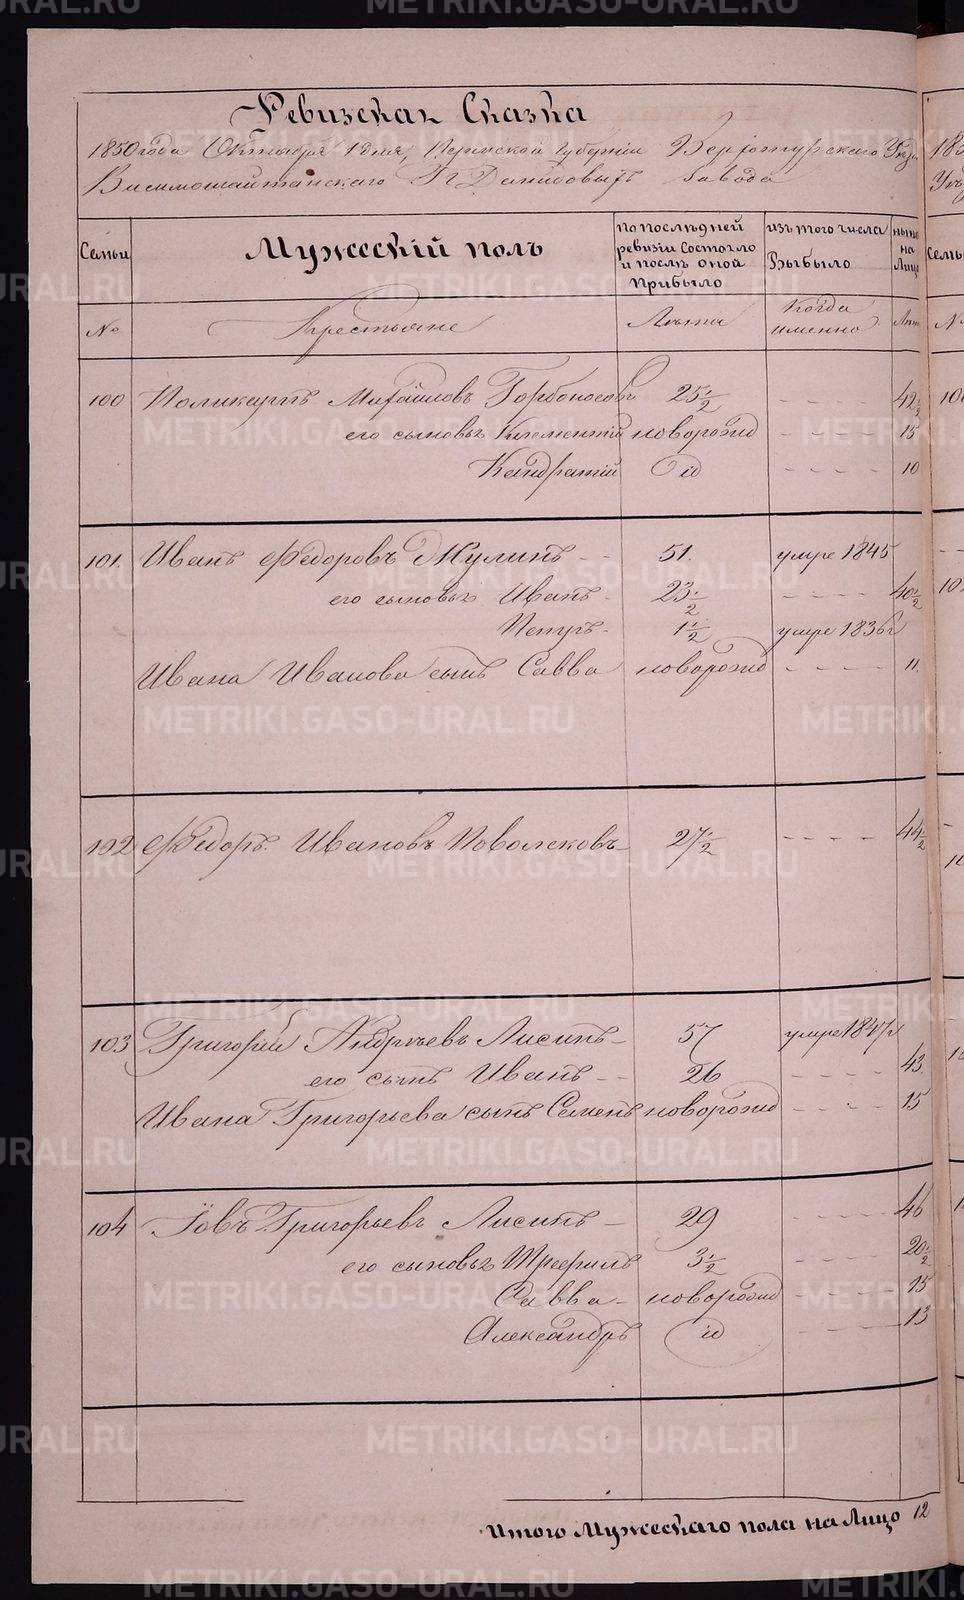 Ревизская Сказка
1850 года Октября 1 дня, Пермской Губернии Верхотурского Уезда
Висимошайтанскаго П Демидовыхъ завода
Семьи
Мужескій полъ
по послѣдней ревизіи Состояло и послѣ оной прибыло
изъ того числа Выбыло
нынѣ на Лицо
№
Крестьяне
Лѣта
Когда именно
Лѣта
100 Поликарпъ Михайловъ Горбоносовъ 25 1/2 - - - - 42 1/2
его сыновья Климентій новорожд - - - - 15
Кандратій id - - - - 10
101. Иванъ Федоровъ Жулинъ - - 51. умре 1845
его сыновья Иванъ - 23 1/2 - - - - 40 1/2
Петръ - 1 1/2 умре 1836г
Ивана Иванова сынъ Савва новорожд - - - - 11.
102 Федоръ Ивановъ Поволековъ 27 1/2 - - - - 44 1/2
103 Григорій Андреевъ Лисинъ - 57 умре 1847г
его сынъ Иванъ - - 26 - - - - 43.
Ивана Григорьева сынъ Семенъ новорожд - - - - 15
104 Іовъ Григорьевъ Лисинъ - 29 - - - - 46
его сыновья Трефилъ 3 1/2 - - - - 20 1/2
Савва - новорожд - - - - 15
Александръ id 13
Итого Мужескаго пола на Лицо 12
METRIKI.GASO-URAL.RU